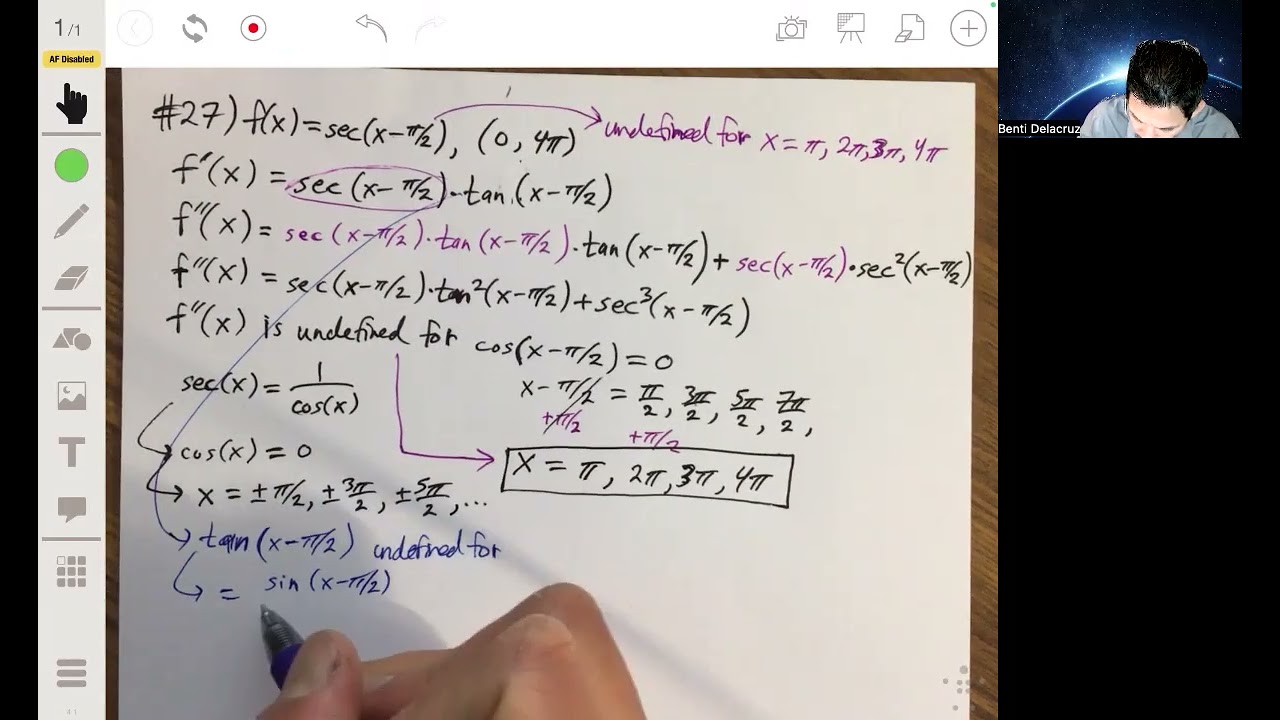 1/1
AF Disabled
Benti Delacruz
#27) f(x) = sec(x-π/2), (0, 4π) undefined for x = π, 2π, 3π, 4π
f'(x) = sec(x-π/2)·tan(x-π/2)
f''(x) = sec(x-π/2)·tan(x-π/2)·tan(x-π/2) + sec(x-π/2)·sec²(x-π/2)
f''(x) = sec(x-π/2)·tan²(x-π/2) + sec³(x-π/2)
f''(x) is undefined for cos(x-π/2) = 0
x - π/2 = π/2, 3π/2, 5π/2, 7π/2,
+π/2 +π/2
x = π, 2π, 3π, 4π
sec(x) = 1/cos(x)
cos(x) = 0
x = ±π/2, ±3π/2, ±5π/2, ...
tan(x-π/2) undefined for
= sin(x-π/2)
T